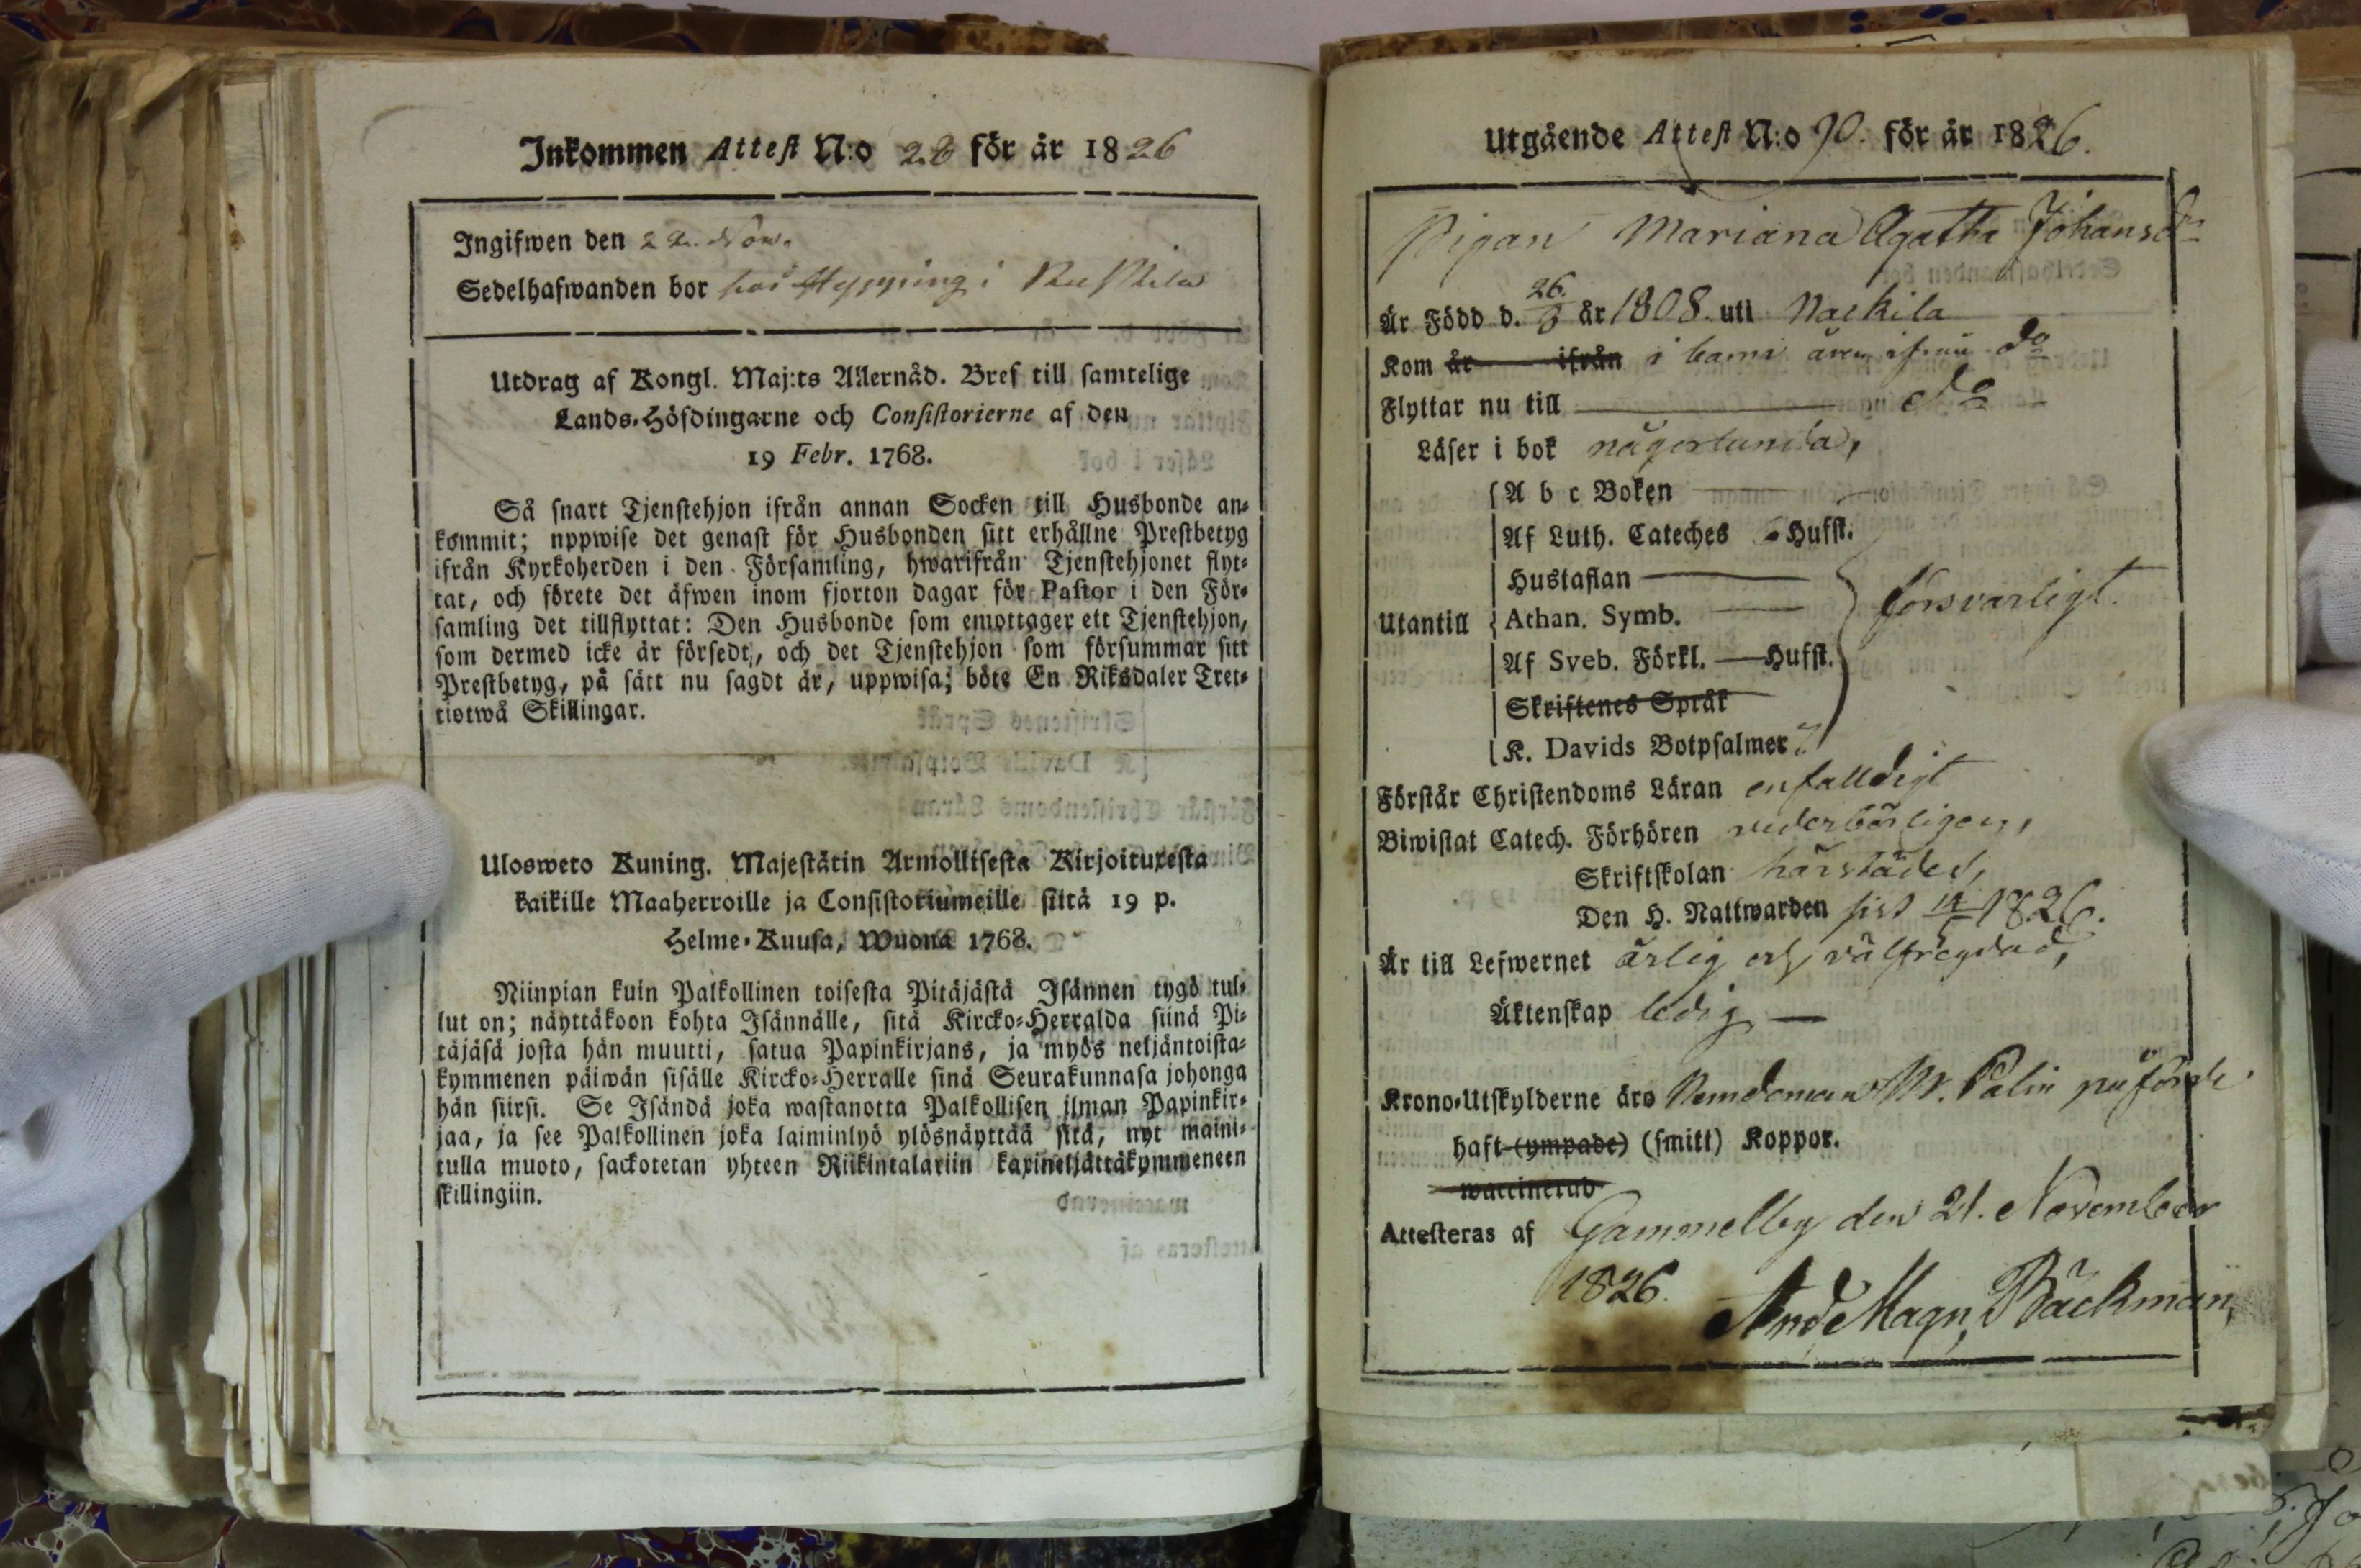 Inkommen Attest N:o 28 för år 1826
Ingifwen den 22. Nov.
Sedelhafwanden bor hos Hypping i
Utdrag af Kongl. Maj:ts Allernåd. Bref till samtelige
Lands-Höfdingarne och Consistorierne af den
19 Febr. 1768.
Så snart Tjenstehjon ifrån annan Socken till Husbonde an-
kommit; uppwise det genast för Husbonden sitt erhållne Prestbetyg
ifrån Kyrkoherden i den Församling, hwarifrån Tjenstehjonet flyt-
tat, och förete det äfwen inom fjorton dagar för Pastor i den För-
samling det tillflyttat: Den Husbonde som emottager ett Tjenstehjon,
som dermed icke är försedt, och det Tjenstehjon som försummar sitt
Prestbetyg, på sätt nu sagdt är, uppwisa; böte En Riksdaler Tret-
tiotwå Skillingar.
Ulosweto Kuning. Majestätin Armollisesta Kirjoituxesta
kaikille Maaherroille ja Consistoriumeille siitä 19 p.
Helme-Kuusa, Wuona 1768.
Niinpian kuin Palkollinen toisesta Pitäjästä Isännen tygö tul-
lut on; näyttäkoon kohta Isännälle, sitä Kircko-Herralda siinä Pi-
täjäsä josta hän muutti, satua Papinkirjans, ja myös neljäntoista-
kymmenen päiwän sisälle Kircko-Herralle sinä Seurakunnasa johonga
hän siirsi. Se Isändä joka wastanotta Palkollisen ilman Papinkir-
jaa, ja see Palkollinen joka laiminlyö ylösnäyttää sitä, nyt maini-
tulla muoto, sackotetan yhteen Riikintalariin kaxineljättäkymmeneen
skillingiin.
Utgående Attest N:o 90. för år 1826.
Pigan Mariana Agatha Johansdr
Är Född d. 26/8 år 1808 uti Nackila
Kom år ifrån i barna åren ifrån do
Flyttar nu till do
Läser i bok någorlunda,
A b c Boken
Af Luth. Cateches Hufst.
Hustaflan
Utantill Athan. Symb. försvarligt.
Af Sveb. Förkl. Hufst.
Skriftenes Språk
K. Davids Botpsalmer 7
Förstår Christendoms Läran enfalldigt
Biwistat Catech. Förhören vederbörligen,
Skriftskolan härstädes,
Den H. Nattwarden sist 1826.
Är till Lefwernet ärlig och välfrägdad,
Äktenskap ledig
Krono-Utskylderne äro Nemdeman M. Palin påförde.
haft (ympade) (smitt) Koppor.
waccinerad
Attesteras af Gammelby den 21. November
1826. And. Magn. Bäckman,